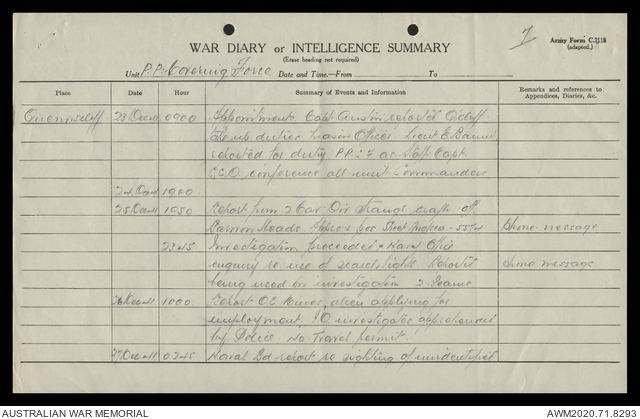 7
Army Form C.2118
(adapted.)
WAR DIARY or INTELLIGENCE SUMMARY
(Erase heading not required)
Unit P.P. Covering Force Date and Time.—From To
Place Date Hour Summary of Events and Information Remarks and references to
Appendices, Diaries, &c.
Queenscliff 23 Dec 41 0900 Appointment. Capt Austin reported
take up duties Liaison Officer. Lieut E.
reported for duty P.P.C.F as Staff Capt.
conference all unit Commanders
24 Dec 41 1900
25 Dec 41 1950 Report from 2 Cav Div Strange craft off
Barwon Heads. Approx pos 5574 Phone message
2345 Investigation proceeded Naval Office
enquiry re use of searchlights Reported Phone message
being used on investigation
26 Dec 41 1000 Report O.C. Mines, alien applying for
employment, I.O. investigates apprehended
by Police, No Travel permit
27 Dec 41 0345 Naval Bd report re sighting of unidentified
AUSTRALIAN WAR MEMORIAL
AWM2020.71.8293